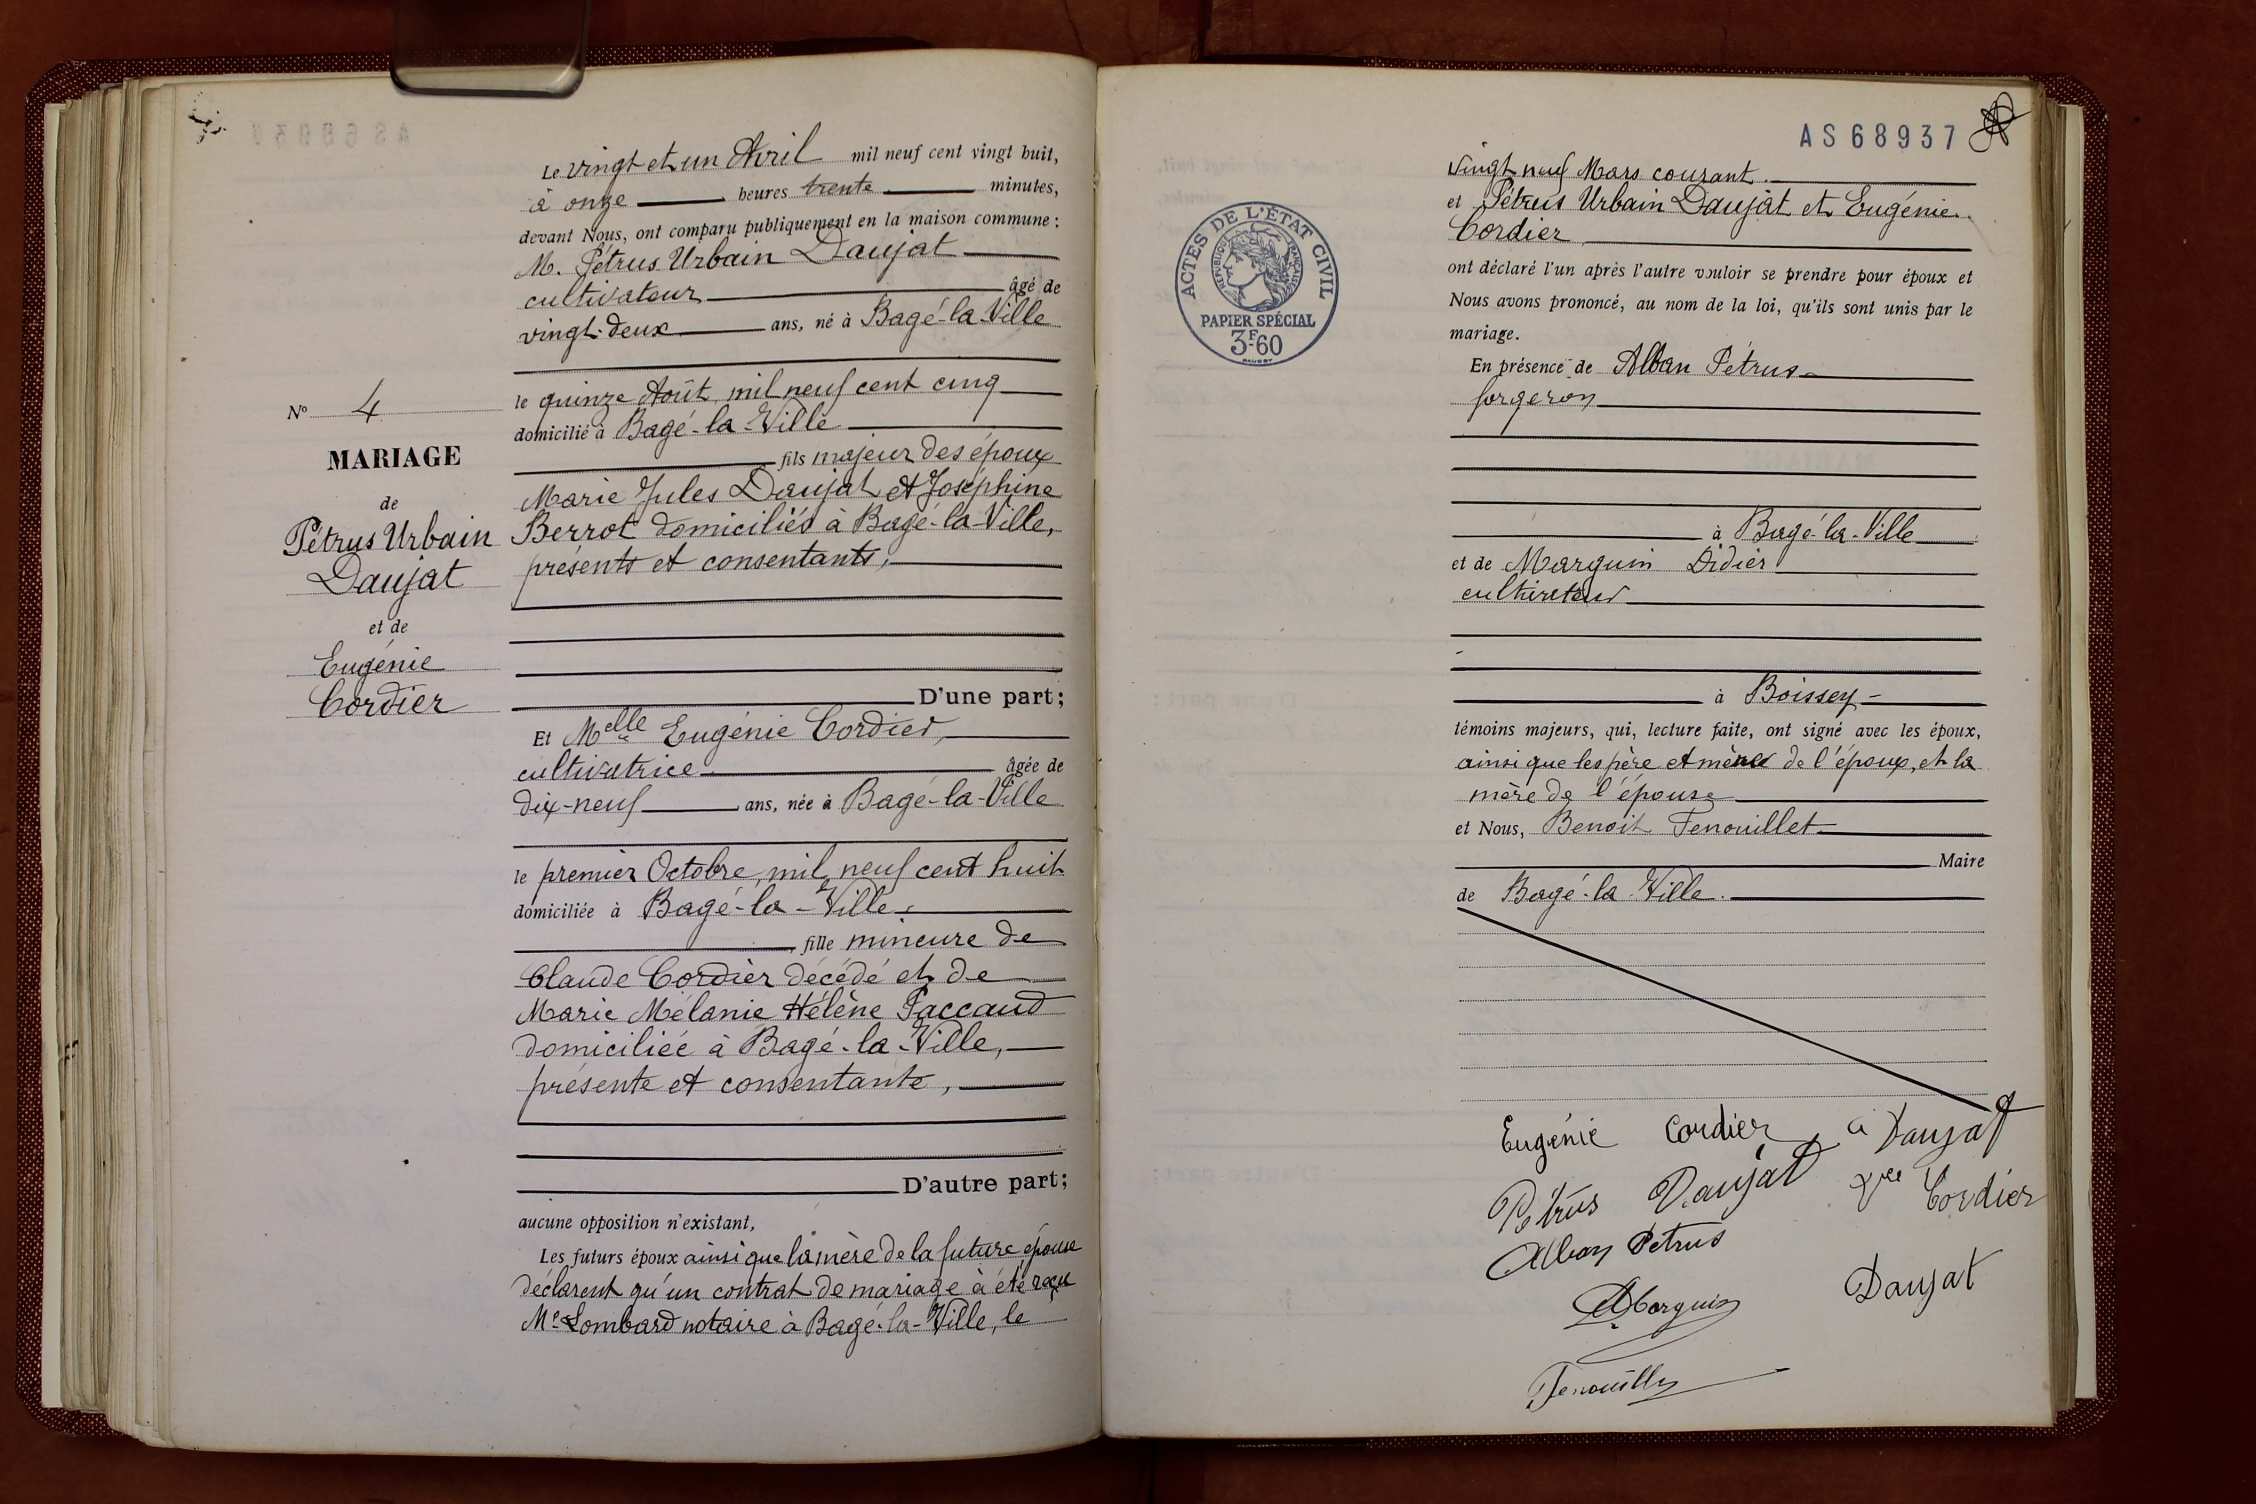 Le vingt et un Avril mil neuf cent vingt huit,
à onze heures trente minutes,
devant Nous, ont comparu publiquement en la maison commune :
M. Pétrus Urbain Daujat
cultivateur âgé de
vingt-deux ans, né à Bagé-la-Ville
le quinze Août mil neuf cent cinq
domicilié à Bagé-la-Ville
fils majeur des époux
Marie Jules Daujat et Joséphine
Berrot domiciliés à Bagé-la-Ville,
présents et consentants,
D'une part;
Et Melle Eugénie Cordier,
cultivatrice âgée de
dix-neuf ans, née à Bagé-la-Ville
le premier Octobre mil neuf cent huit
domiciliée à Bagé-la-Ville
fille mineure de
Claude Cordier décédé et de
Marie Mélanie Hélène Paccaud
domiciliée à Bagé-la-Ville,
présente et consentante,
D'autre part;
aucune opposition n'existant,
Les futurs époux ainsi que la mère de la future épouse
déclarent qu'un contrat de mariage à été reçu
Me Lombard notaire à Bagé-la-Ville, le
No 4
MARIAGE
de
Pétrus Urbain
Daujat
et de
Eugénie
Cordier
AS 68937
ACTES DE L'ÉTAT CIVIL
RÉPUBLIQUE FRANÇAISE
PAPIER SPÉCIAL
3F.60
vingt neuf Mars courant
et Pétrus Urbain Daujat et Eugénie
Cordier
ont déclaré l'un après l'autre vouloir se prendre pour époux et
Nous avons prononcé, au nom de la loi, qu'ils sont unis par le
mariage.
En présence de Alban Pétrus
forgeron
à Bagé-la-Ville
et de Marguin Didier
cultivateur
à Boissey
témoins majeurs, qui, lecture faite, ont signé avec les époux,
ainsi que les père et mère de l'époux, et la
mère de l'épouse
et Nous, Benoit Fenouillet
Maire
de Bagé-la-Ville.
Eugénie Cordier Daujat
Pétrus Daujat Vve Cordier
Alban Petrus
Daujat
Marguin
Fenouillet